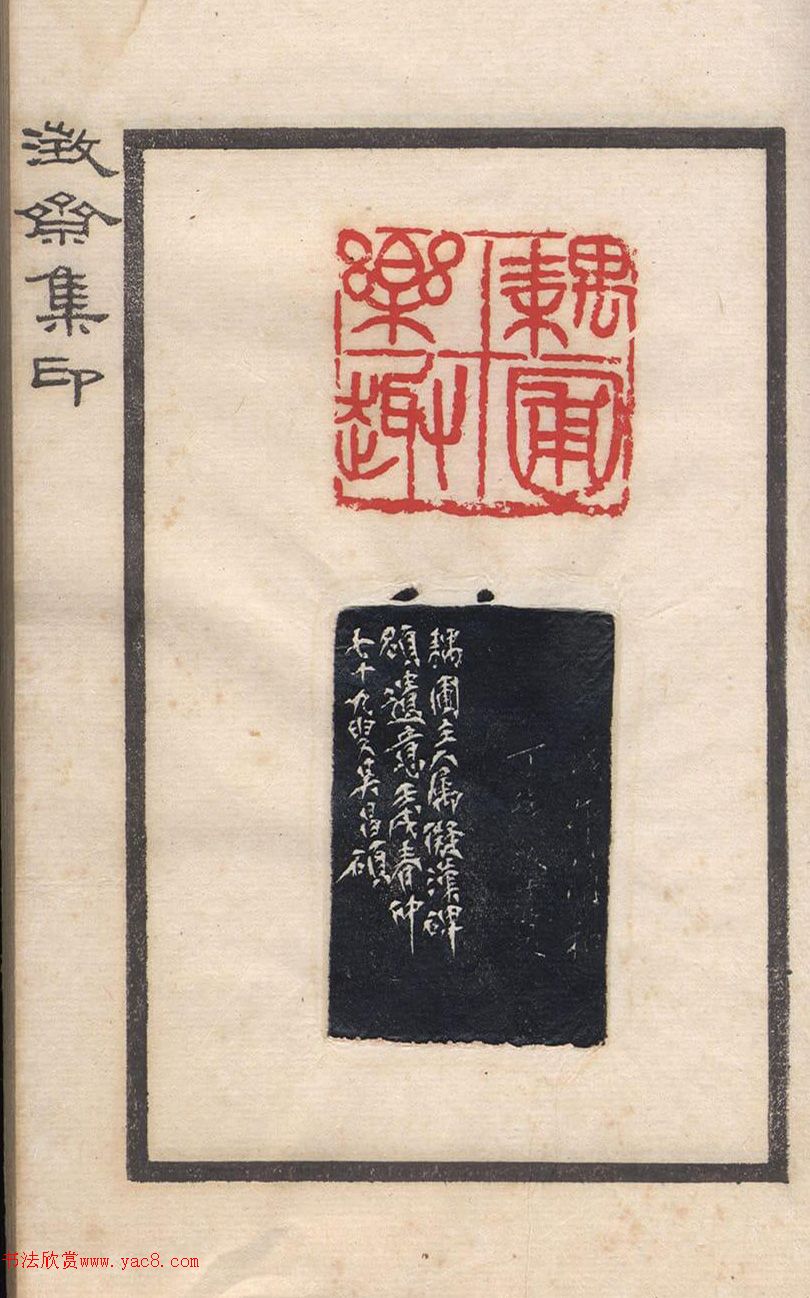 耦圃
樂趣
耦圃主人屬儗漢碑
額遺意壬戌春仲
七十九叟吳昌碩
澂齋集印
书法欣赏www.yac8.com